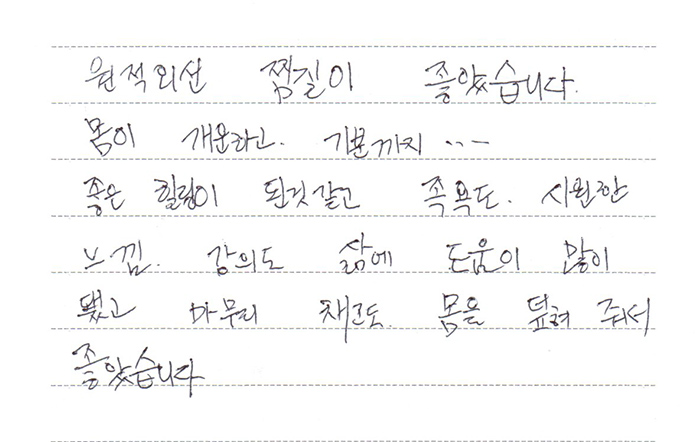 원적외선 찜질이 좋았습니다.
몸이 개운하고. 기분까지 ...
좋은 힐링이 된것 같고 족욕도. 시원한
느낌. 강의도 삶에 도움이 많이
됐고 마무리 채크도. 몸을 덮혀 줘서
좋았습니다